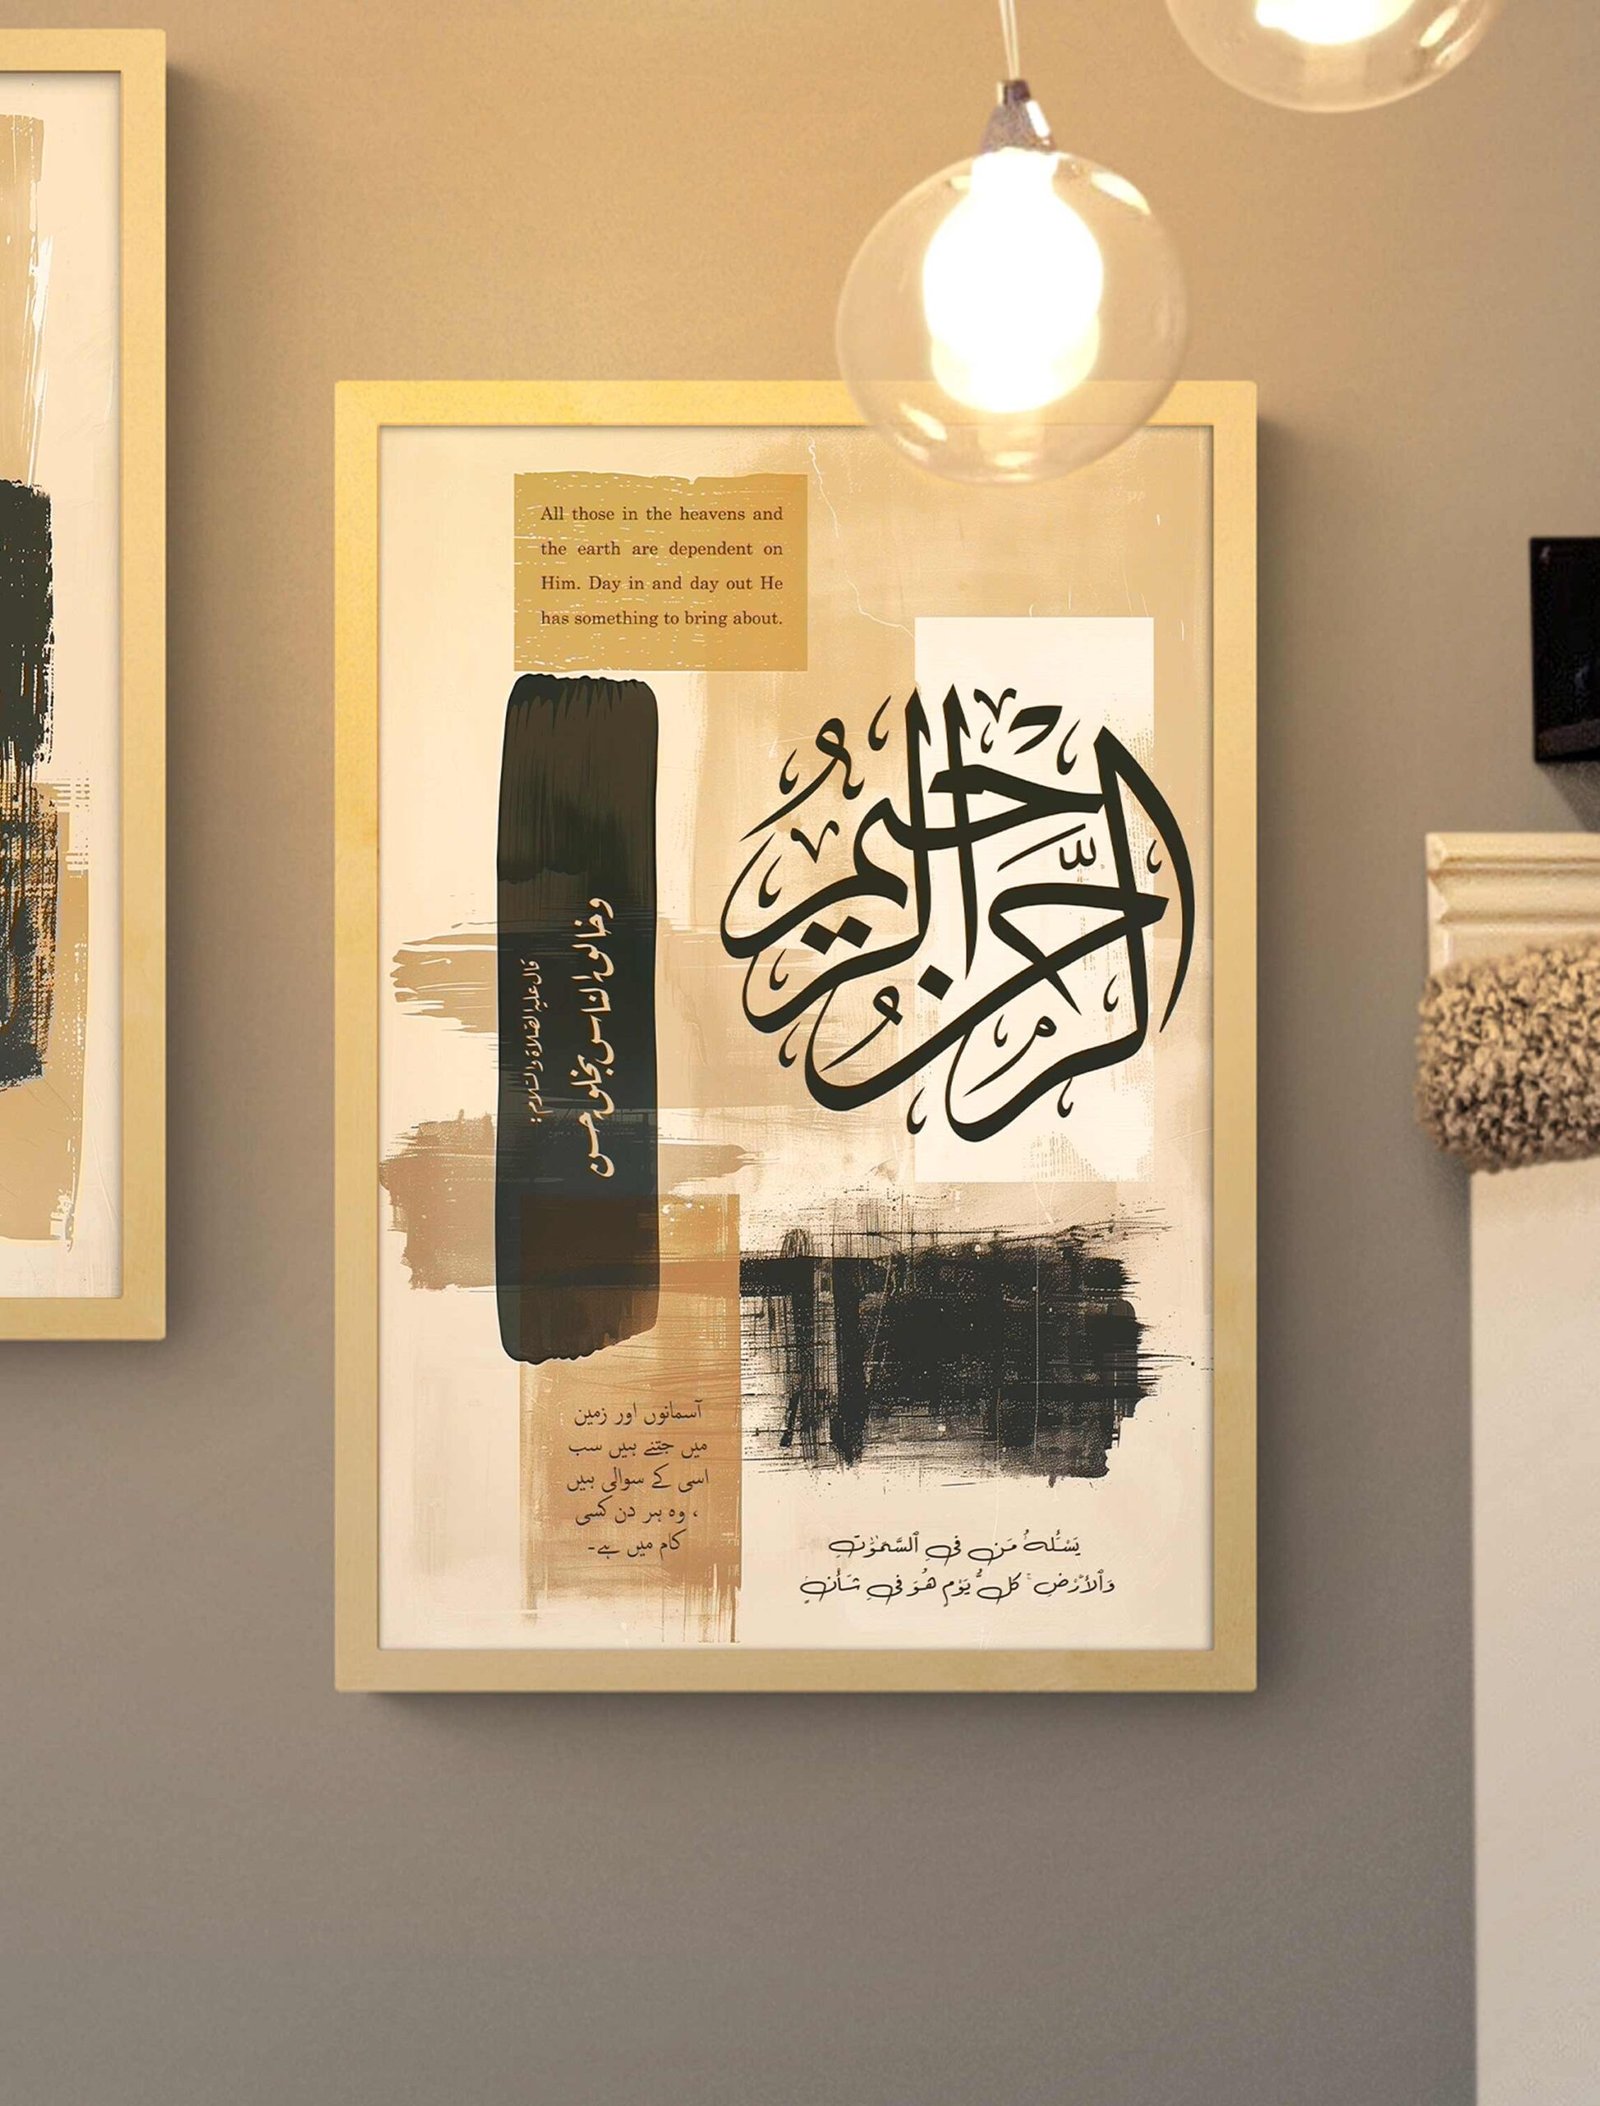 All those in the heavens and
the earth are dependent on
Him. Day in and day out He
has something to bring about.
الرَّحْمٰنُ الرَّحِيمُ
قال عليه الصلاة والسلام:
وخالق الناس بخلق حسن
آسمانوں اور زمین
میں جتنے ہیں سب
اسی کے سوالی ہیں
، وہ ہر دن کسی
کام میں ہے۔
يَسْـَٔلُهُۥ مَن فِى ٱلسَّمَٰوَٰتِ
وَٱلْأَرْضِ ۚ كُلَّ يَوْمٍ هُوَ فِى شَأْنٍ